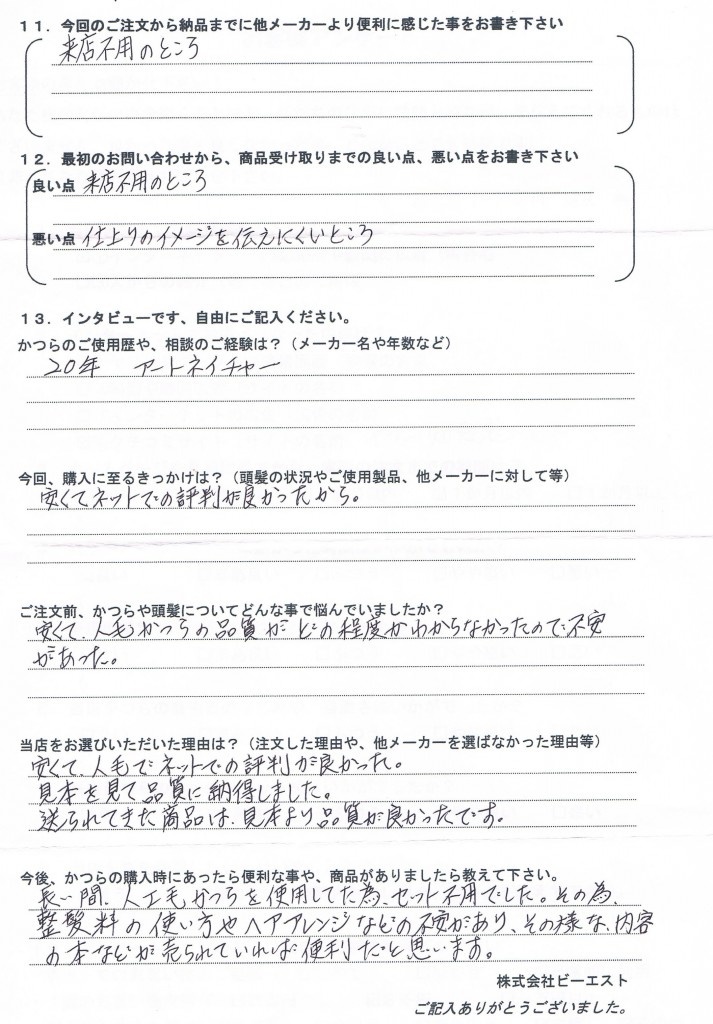 11．今回のご注文から納品までに他メーカーより便利に感じた事をお書き下さい
来店不用のところ
12．最初のお問い合わせから、商品受け取りまでの良い点、悪い点をお書き下さい
良い点 来店不用のところ
悪い点 仕上りのイメージを伝えにくいところ
13．インタビューです、自由にご記入ください。
かつらのご使用歴や、相談のご経験は？（メーカー名や年数など）
20年 アートネイチャー
今回、購入に至るきっかけは？（頭髪の状況やご使用製品、他メーカーに対して等）
安くてネットでの評判が良かったから。
ご注文前、かつらや頭髪についてどんな事で悩んでいましたか？
安くて、人毛かつらの品質がどの程度かわからなかったので不安
があった。
当店をお選びいただいた理由は？（注文した理由や、他メーカーを選ばなかった理由等）
安くて、人毛でネットでの評判が良かった。
見本を見て品質に納得しました。
送られてきた商品は、見本より品質が良かったです。
今後、かつらの購入時にあったら便利な事や、商品がありましたら教えて下さい。
長い間、人工毛かつらを使用してた為、セット不用でした。その為、
整髪料の使い方やヘアアレンジなどの不安があり、その様な、内容
の本などが売られていれば便利だと思います。
株式会社ビーエスト
ご記入ありがとうございました。